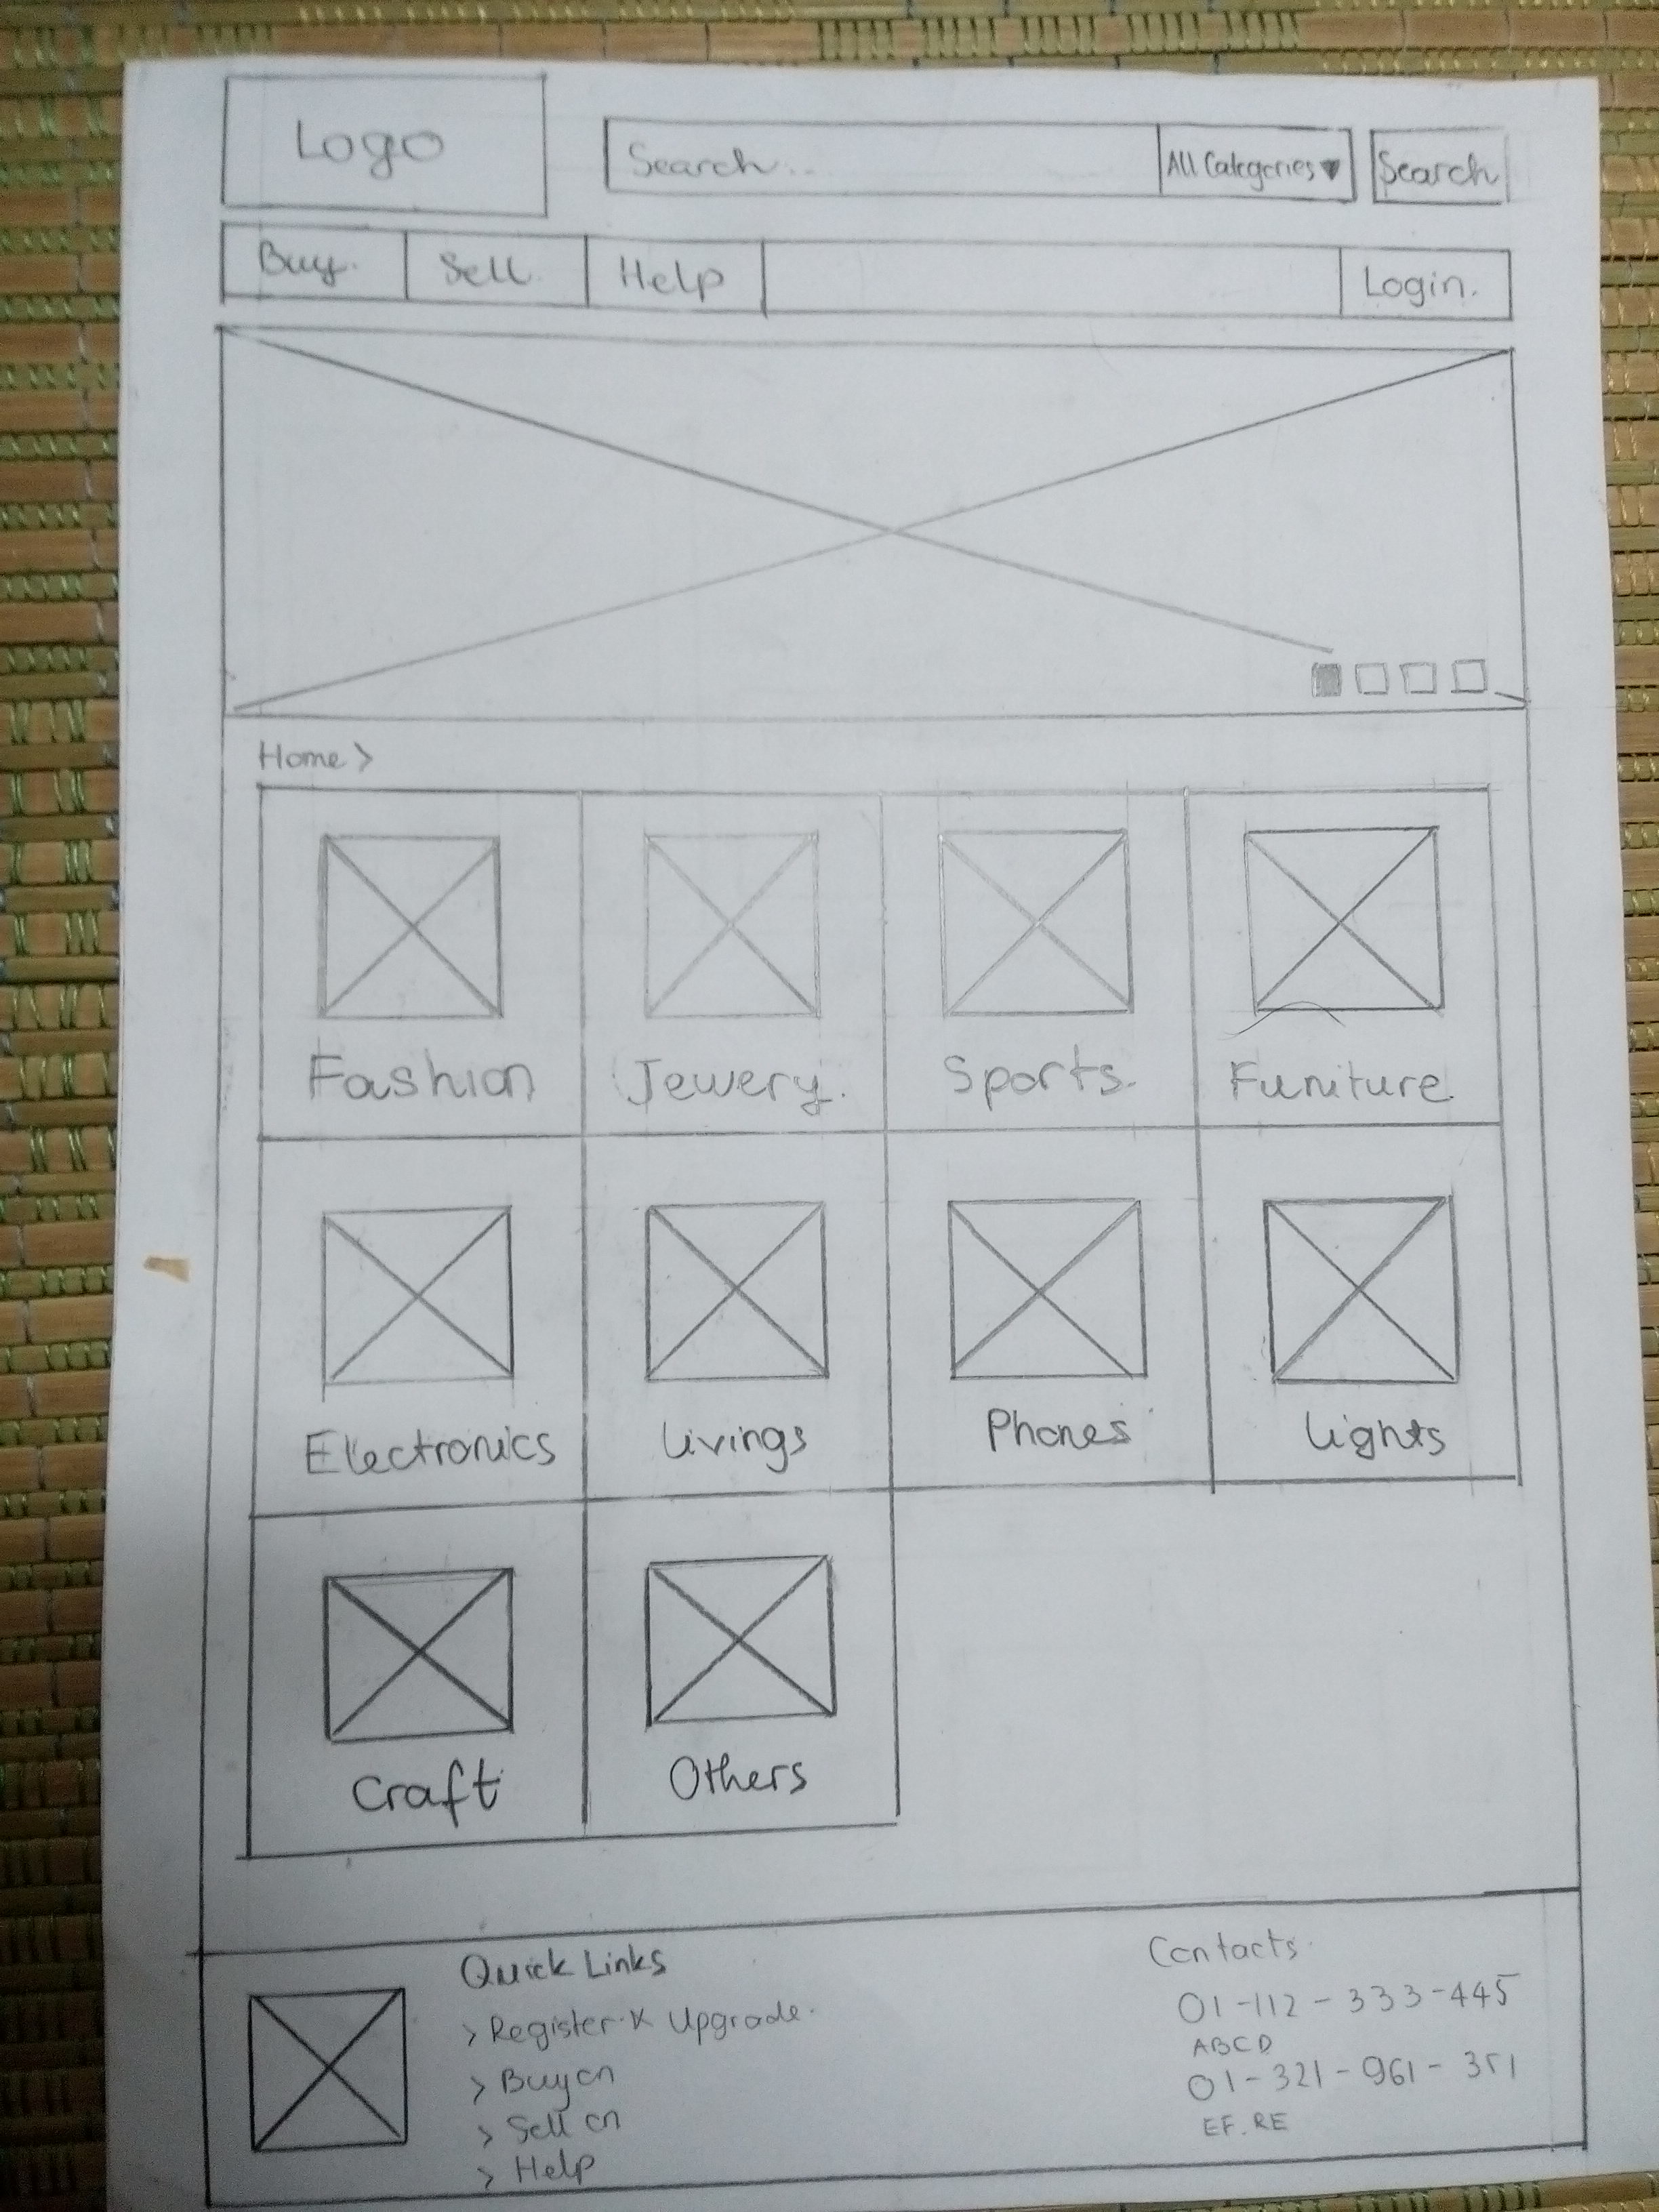 Logo
Search...
All Categories ▼
Search
Buy.
Sell.
Help
Login.
Home >
Fashion
Jewery.
Sports.
Funiture
Electronics
Livings
Phones
Lights
Craft
Others
Quick Links
> Register & Upgrade.
> Buy on
> Sell on
> Help
Contacts.
01-112-333-445
ABCD
01-321-961-351
EF.RE